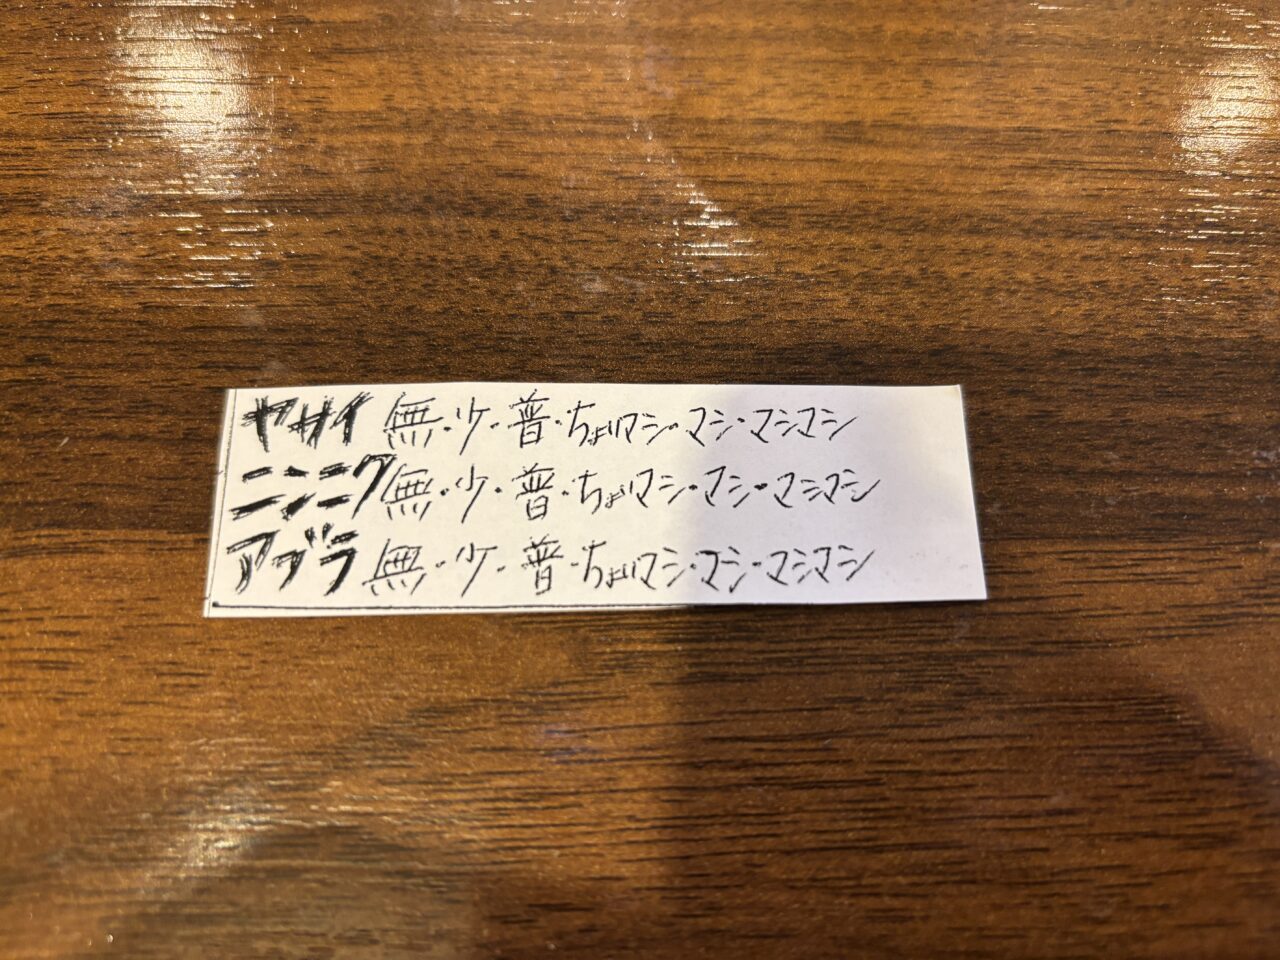 ヤサイ 無・少・普・ちょいマシ・マシ・マシマシ
ニンニク 無・少・普・ちょいマシ・マシ・マシマシ
アブラ 無・少・普・ちょいマシ・マシ・マシマシ